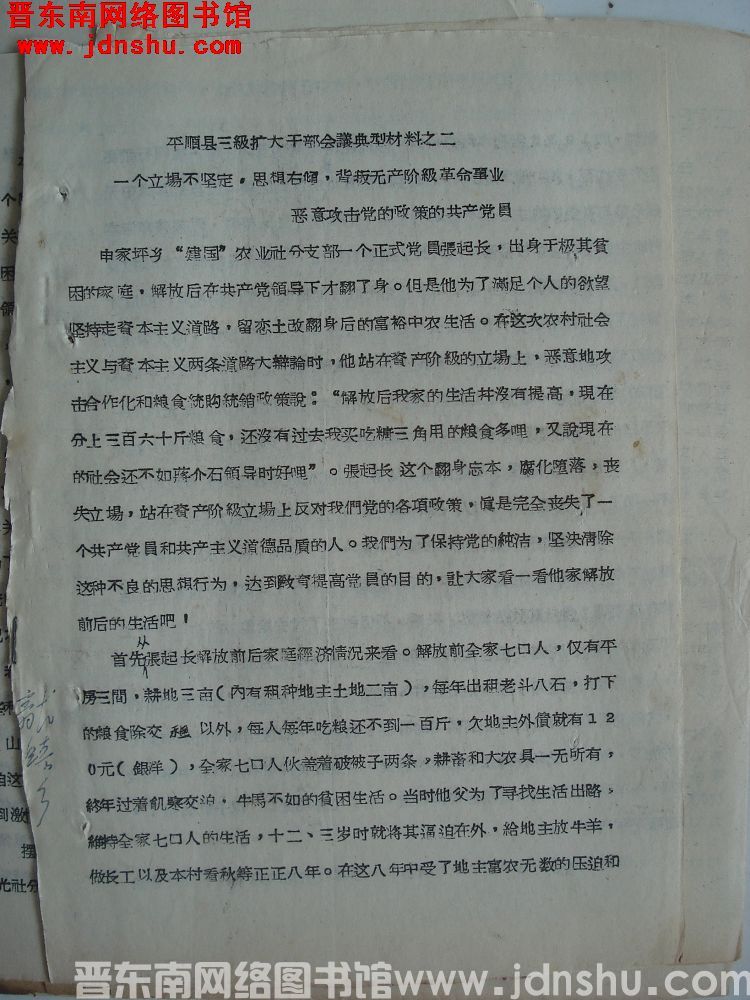 晋东南网络图书馆
www.jdnshu.com
平順县三級扩大干部会議典型材料之二
一个立場不坚定，思想右傾，背叛无产阶級革命事业
恶意攻击党的政策的共产党員
申家坪乡“建国”农业社分支部一个正式党員張起长，出身于极其貧
困的家庭，解放后在共产党領导下才翻了身。但是他为了滿足个人的欲望
坚持走資本主义道路，留恋土改翻身后的富裕中农生活。在这次农村社会
主义与資本主义两条道路大辯論时，他站在資产阶級的立場上，恶意地攻
击合作化和粮食統購統銷政策說：“解放后我家的生活并沒有提高，現在
分上三百六十斤粮食，还沒有过去我买吃糖三角用的粮食多哩，又說現在
的社会还不如蔣介石領导时好哩”。張起长这个翻身忘本，腐化堕落，丧
失立場，站在資产阶級立場上反对我們党的各項政策，眞是完全丧失了一
个共产党員和共产主义道德品質的人。我們为了保持党的純洁，坚决清除
这种不良的思想行为，达到敎育提高党員的目的，让大家看一看他家解放
前后的生活吧！
首先从張起长解放前后家庭經济情况来看。解放前全家七口人，仅有平
房三間，耕地三亩（內有租种地主土地二亩），每年出租老斗八石，打下
的粮食除交租以外，每人每年吃粮还不到一百斤，欠地主外債就有１２
０元（銀洋），全家七口人伙盖着破被子两条，耕畜和大农具一无所有，
終年过着飢寒交迫，牛馬不如的貧困生活。当时他父为了寻找生活出路，
維持全家七口人的生活，十二、三岁时就将其逼迫在外，給地主放牛羊，
做长工以及本村看秋等正正八年。在这八年中受了地主富农无数的压迫和
晋东南网络图书馆www.jdnshu.com